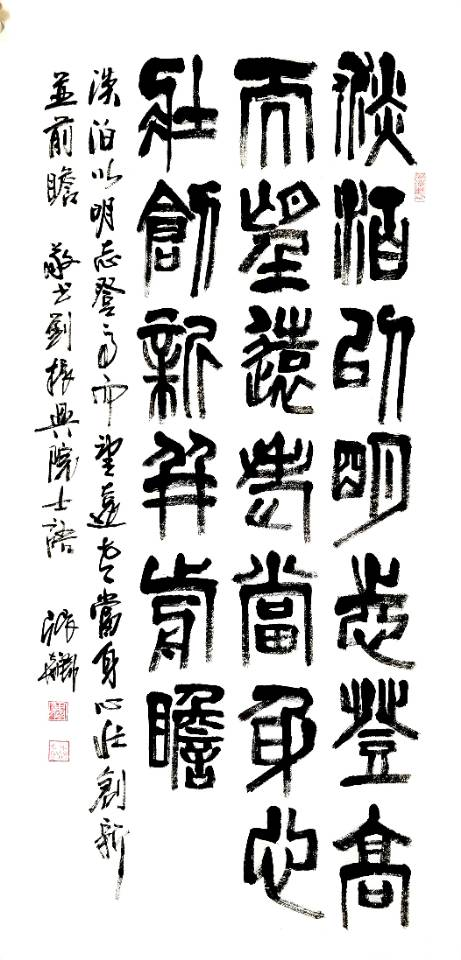 淡泊以明志登高
而望遠老當身心
壯創新并前瞻
淡泊以明志登高而望遠老當身心壯創新
並前瞻 敬書劉振興院士語 張